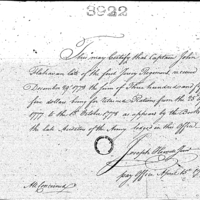 3922
This may Certify that Captain John
Flahavan late of the first Jersey Regiment, received
December 29th 1778 the sum of Three hundred and fifty
five dollars being for retained Rations from the 28
1777 to the 1st October 1778 as appears by the Books
the late Auditors of the Army lodged in this Office
Joseph
Pay Office April
All Concerned